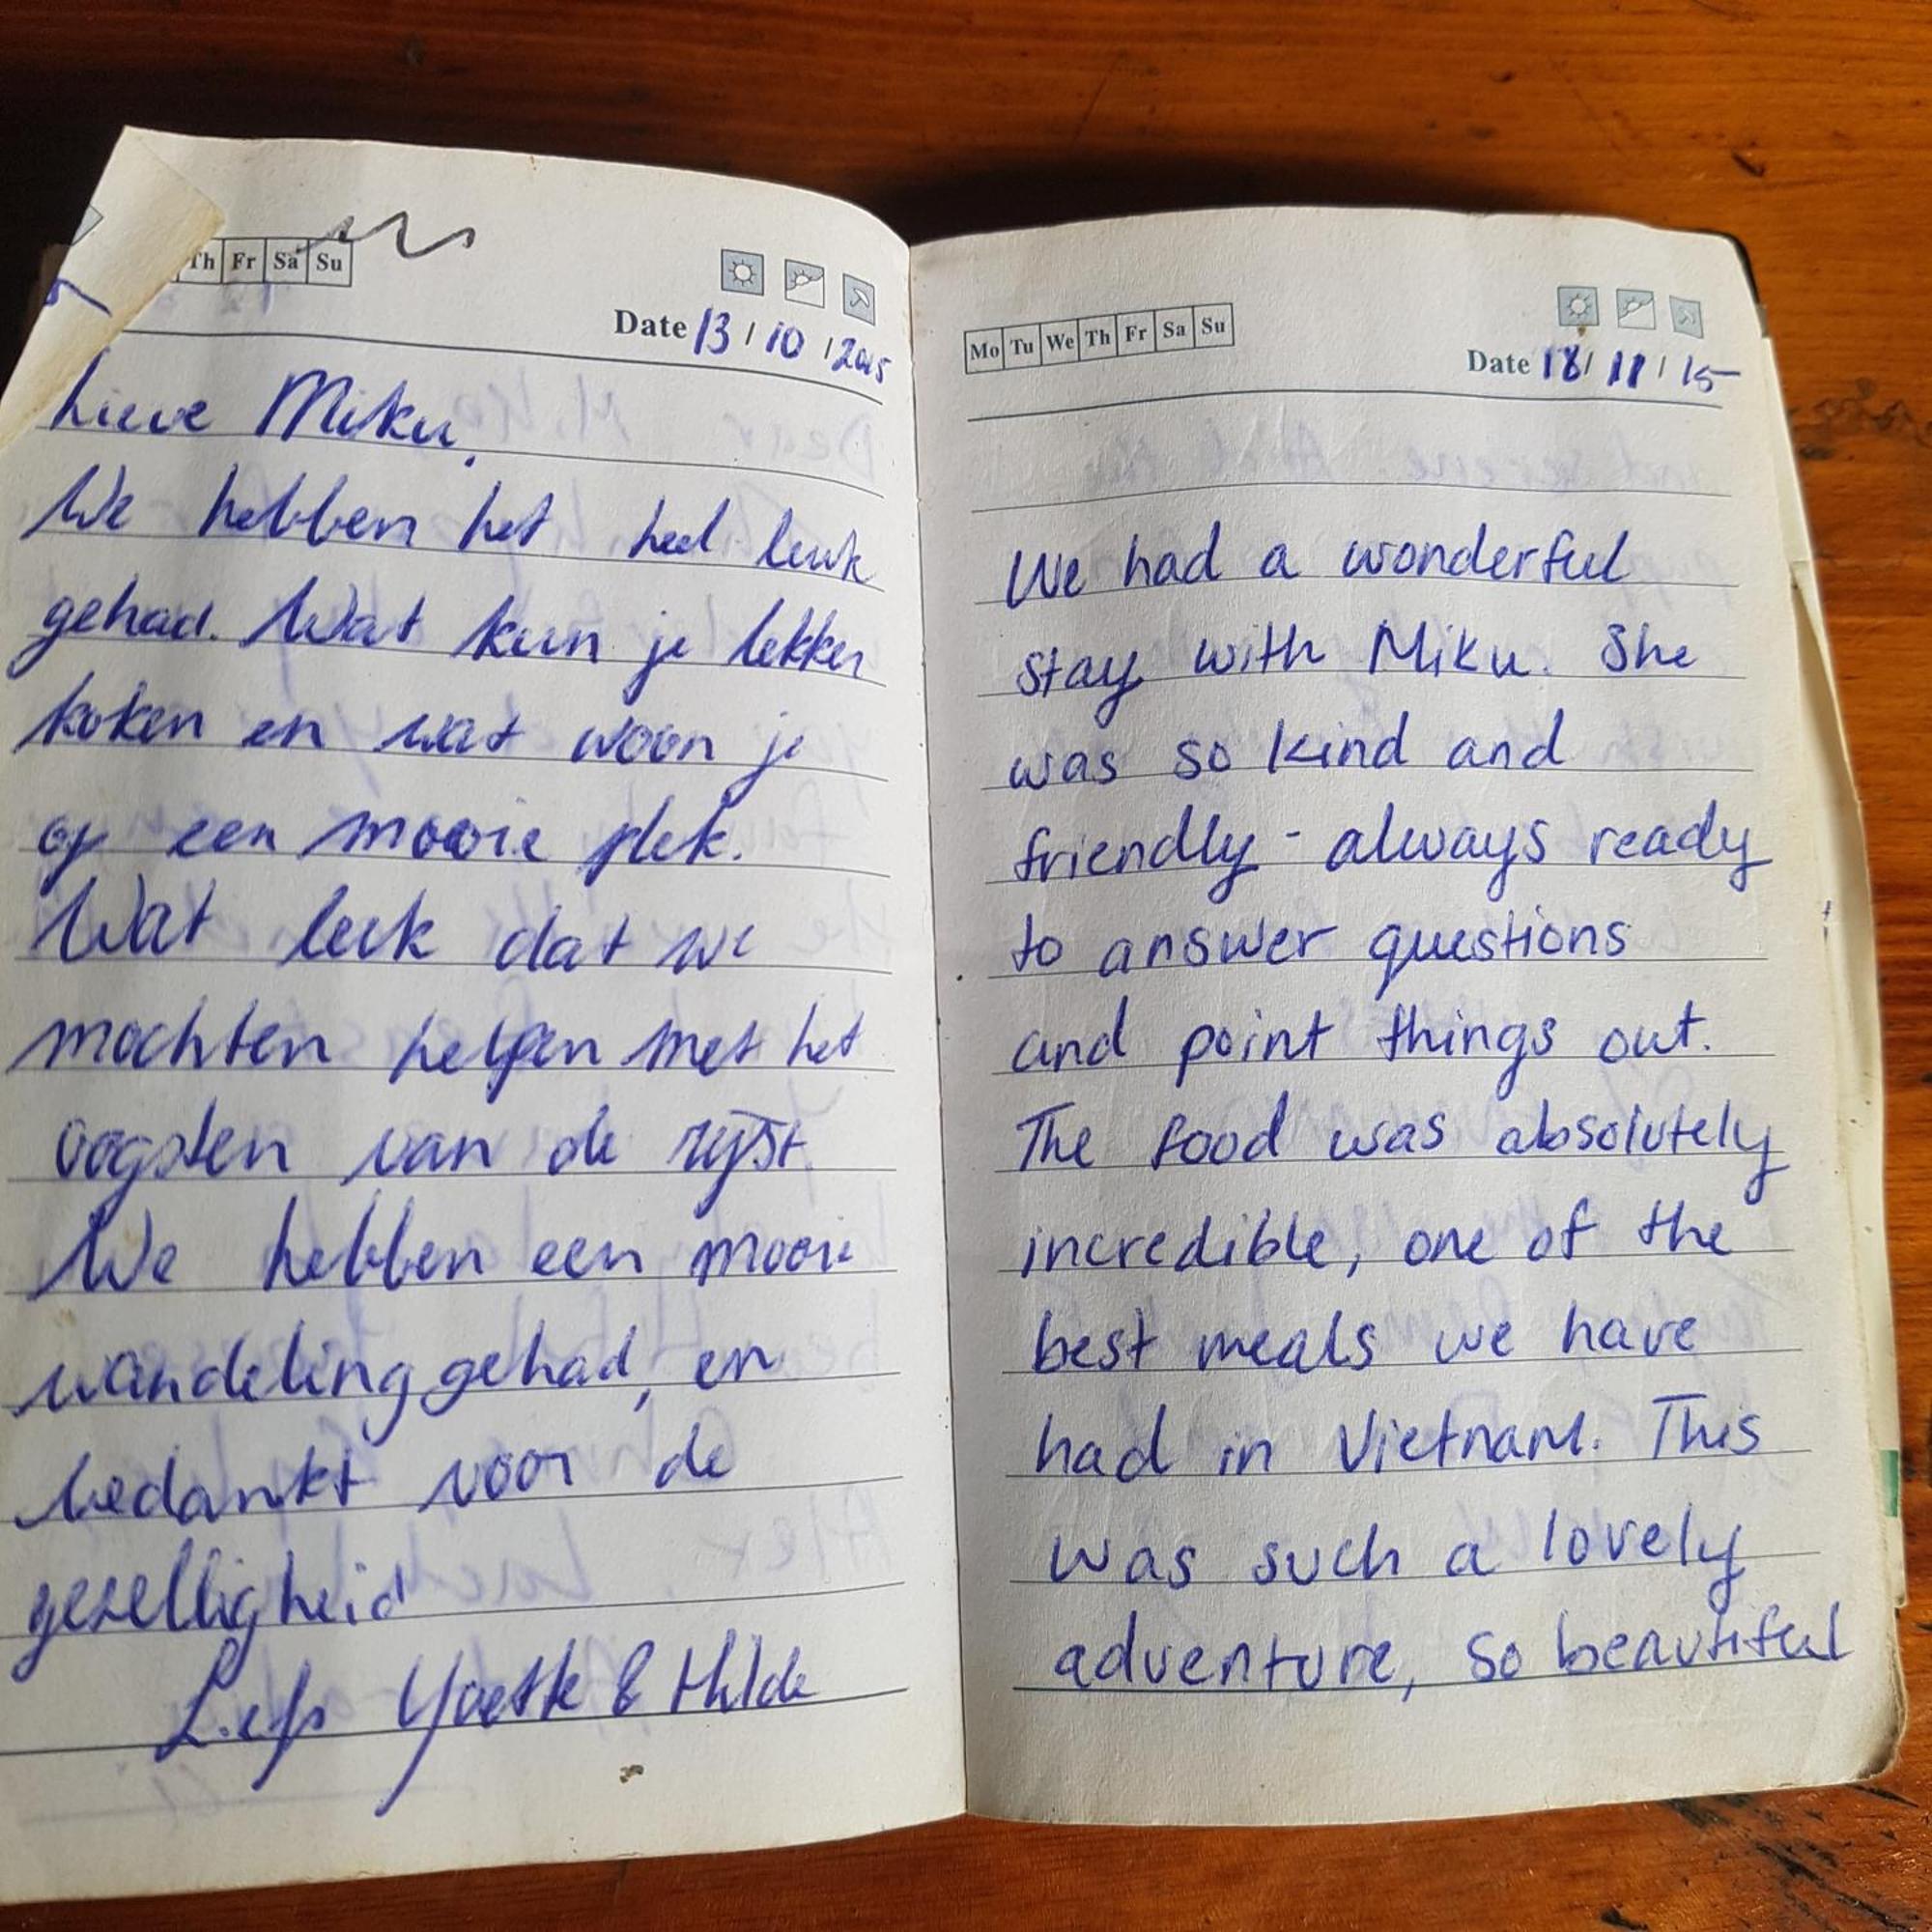 Th Fr Sa Su
Date 13 / 10 / 2015
Lieve Miku,
We hebben het heel leuk
gehad. Wat kun je lekker
koken en wat woon je
op een mooie plek.
Wat leuk dat we
mochten helpen met het
oogsten van de rijst.
We hebben een mooie
wandeling gehad, en
bedankt voor de
gezelligheid
Liefs & Hilde
Mo Tu We Th Fr Sa Su
Date 18 / 11 / 15
We had a wonderful
stay with Miku. She
was so kind and
friendly - always ready
to answer questions
and point things out.
The food was absolutely
incredible, one of the
best meals we have
had in Vietnam. This
was such a lovely
adventure, so beautiful